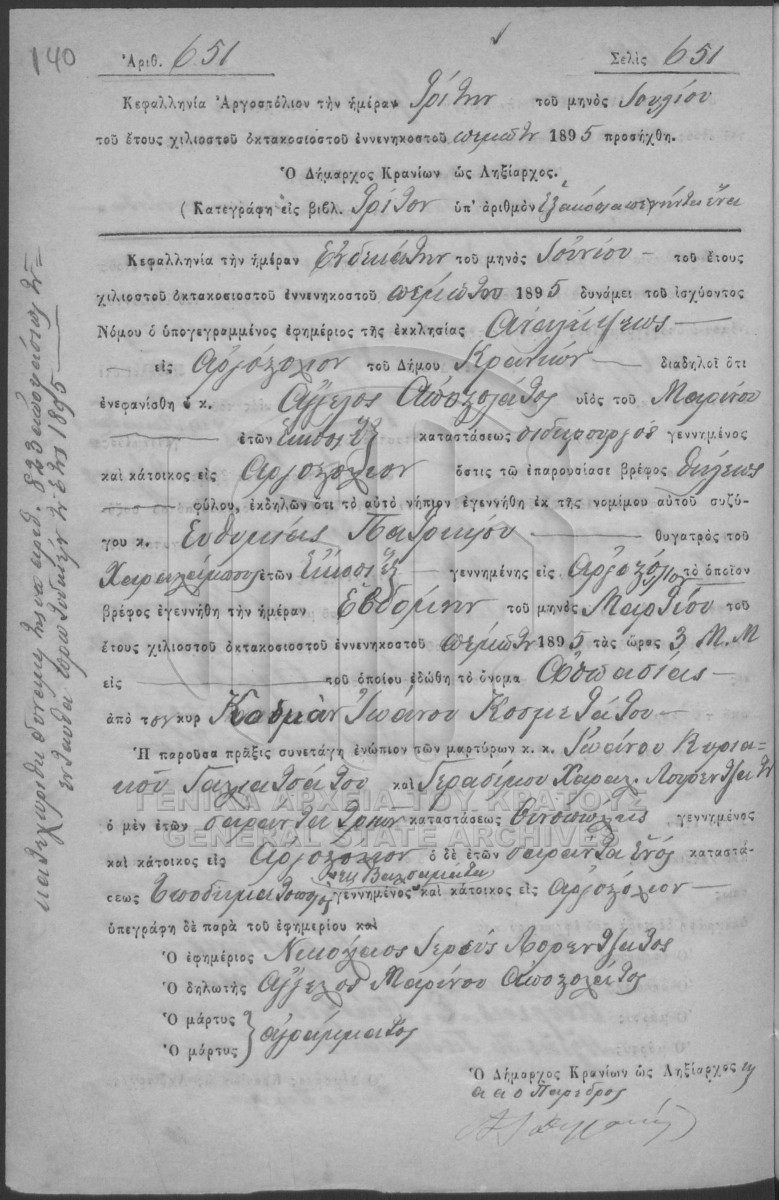 140
Ἀριθ. 651
Σελὶς 651
Κεφαλληνία Ἀργοστόλιον τὴν ἡμέραν Τρίτην τοῦ μηνὸς Ιουλίου
τοῦ ἔτους χιλιοστοῦ ὀκτακοσιοστοῦ ἐννενηκοστοῦ πέμπτου 1895 προσήχθη.
Ὁ Δήμαρχος Κρανίων ὡς Ληξίαρχος.
(Κατεγράφη εἰς βιβλ. Τρίτον ὑπ' ἀριθμὸν ἑξακόσια πεντήντα ἕνα
Κεφαλληνία τὴν ἡμέραν Ἑνδεκάτην τοῦ μηνὸς Ἰουνίου τοῦ ἔτους
χιλιοστοῦ ὀκτακοσιοστοῦ ἐννενηκοστοῦ πέμπτου 1895 δυνάμει τοῦ ἰσχύοντος
Νόμου ὁ ὑπογεγραμμένος ἐφημέριος τῆς ἐκκλησίας Αναλήψεως
εἰς Αργοστόλιον τοῦ Δήμου Κρανίων διαδηλοῖ ὅτι
ἐνεφανίσθη ὁ κ. Άγγελος Αποστολάτος υἱὸς τοῦ Μαρίνου
ἐτῶν Είκοσι ἓξ καταστάσεως σιδερουργός γεννημένος
καὶ κάτοικος εἰς Αργοστόλιον ὅστις τῷ ἐπαρουσίασε βρέφος θήλεως
φύλου, ἐκδηλῶν ὅτι τὸ αὐτὸ νήπιον ἐγεννήθη ἐκ τῆς νομίμου αὐτοῦ συζύ-
γου κ. Ευθυμίας Πατρικίου θυγατρὸς τοῦ
Χαραλάμπους ἐτῶν Είκοσι ἓξ γεννημένης εἰς Αργοστόλιον τὸ ὁποῖον
βρέφος ἐγεννήθη τὴν ἡμέραν Ἑβδόμην τοῦ μηνὸς Μαρτίου τοῦ
ἔτους χιλιοστοῦ ὀκτακοσιοστοῦ ἐννενηκοστοῦ πέμπτου 1895 τὰς ὥρας 3 Μ.Μ
εἰς τοῦ ὁποίου ἐδώθη τὸ ὄνομα Ασπασίας
ἀπὸ τον κυρ Ιωάνου Κοσμετάτου
Ἡ παροῦσα πρᾶξις συνετάγη ἐνώπιον τῶν μαρτύρων κ. κ. Ιωάνου Κυρια-
κοῦ Γαλιατσάτου καὶ Γερασίμου Χαραλ. Λορεντζάτου
ὁ μὲν ἐτῶν σαράντα καταστάσεως γεννημένος
καὶ κάτοικος εἰς Αργοστόλιον ὁ δὲ ἐτῶν σαράντα ἑνός καταστά-
σεως Υποδηματοποιός γεννημένος εις Βαλσαμάτα καὶ κάτοικος εἰς Αργοστόλιον
ὑπεγράφη δὲ παρὰ τοῦ ἐφημερίου καὶ
Ὁ ἐφημέριος Νικόλαος Ιερεύς Λορεντζάτος
Ὁ δηλωτὴς Αγγελος Μαρίνου Αποστολάτος
Ὁ μάρτυς
Ὁ μάρτυς
αγράμματος
Ὁ Δήμαρχος Κρανίων ὡς Ληξίαρχος
α α ο Παρεδρος
κατεχωρίσθη δυνάμει της υπ αριθ. 823 αποφάσεως των
ενταύθα Πρωτοδικών του έτους 1895
ΓΕΝΙΚΑ ΑΡΧΕΙΑ ΤΟΥ ΚΡΑΤΟΥΣ
GENERAL STATE ARCHIVES